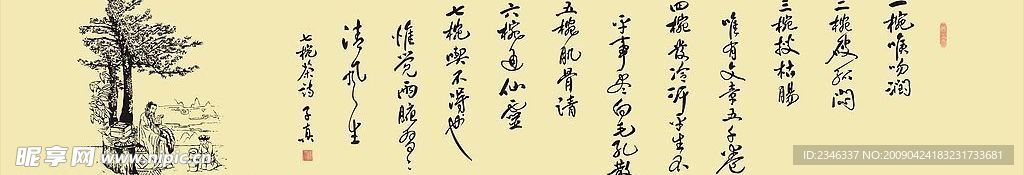 一椀喉吻润
二椀破孤闷
三椀搜枯腸
唯有文章五千卷
四椀发冷汗平生不
平事尽向毛孔散
五椀肌骨清
六椀通仙灵
七椀喫不得也
惟觉两腋習々
清风生
七椀茶诗
昵享网 www.nipic.cn
NO:2346337 NO:20090424183231733681